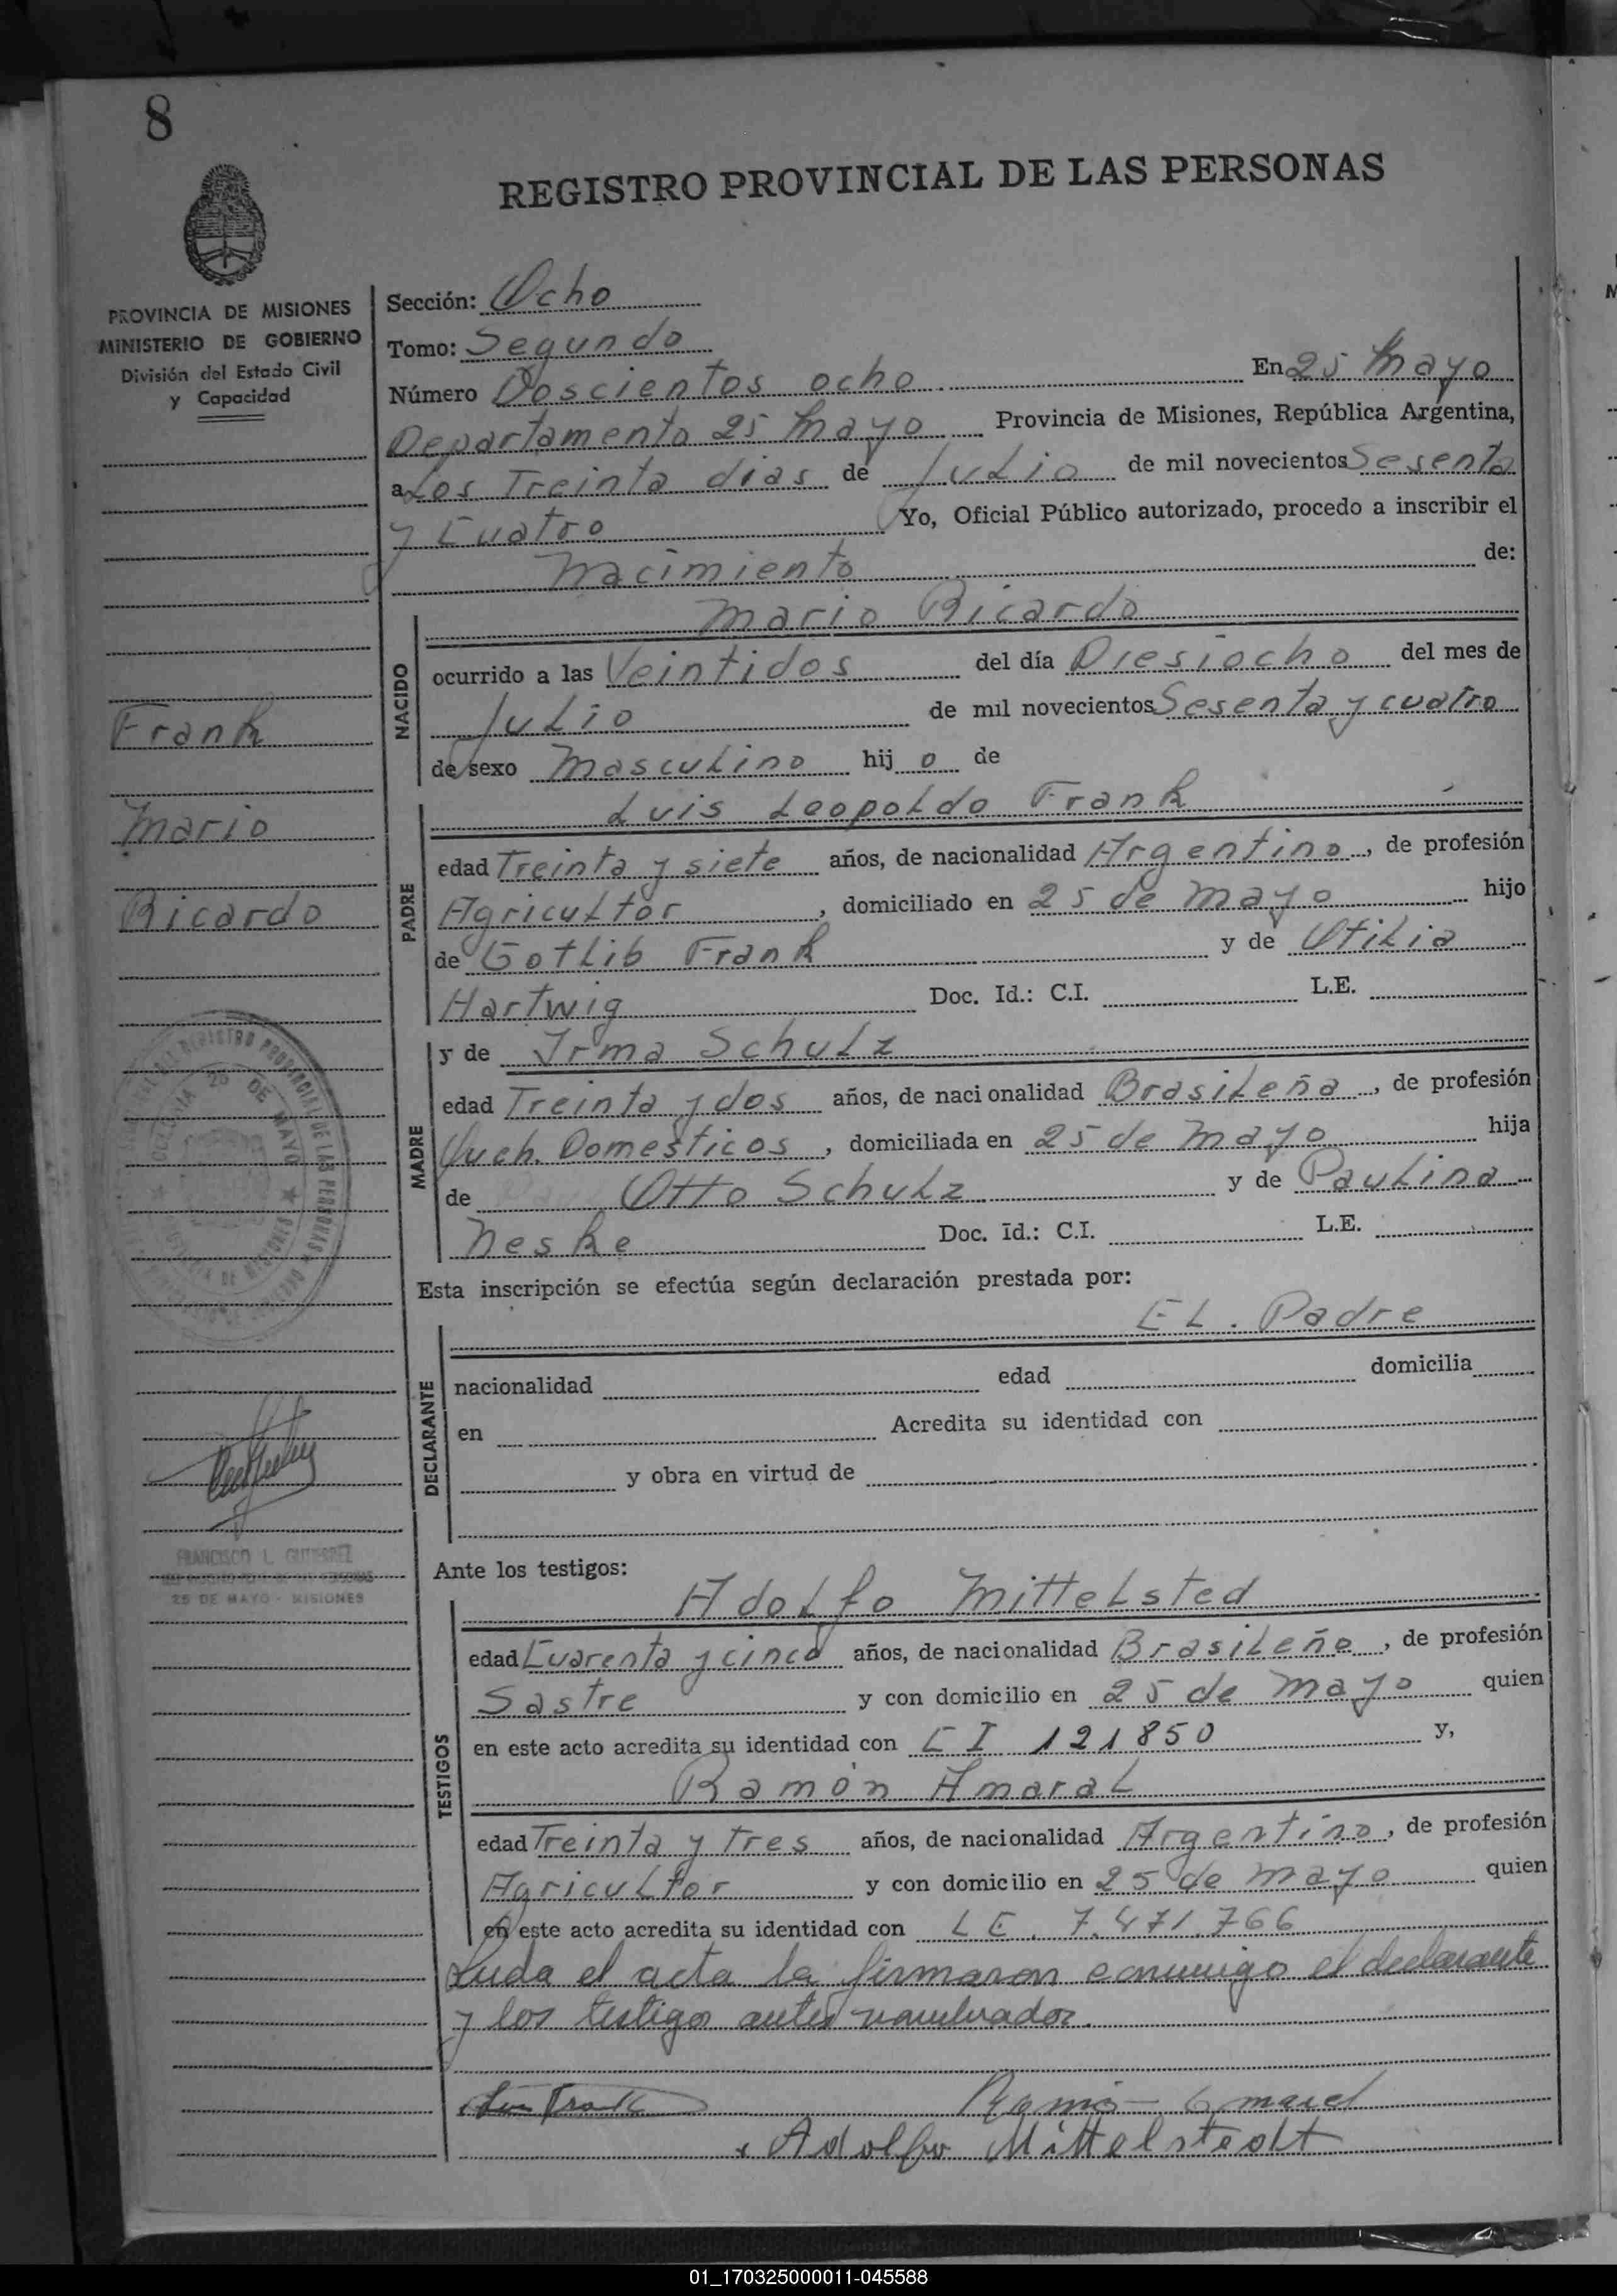 8
REGISTRO PROVINCIAL DE LAS PERSONAS
PROVINCIA DE MISIONES
MINISTERIO DE GOBIERNO
División del Estado Civil
y Capacidad
Frank
Mario
Ricardo
REGISTRO PROVINCIAL DE LAS PERSONAS
25 DE MAYO
FRANCISCO L. GUTIERREZ
25 DE MAYO - MISIONES
Sección: Ocho
Tomo: Segundo
Número Doscientos ocho En 25 Mayo
Departamento 25 Mayo Provincia de Misiones, República Argentina,
a Los Treinta dias de Julio de mil novecientos Sesenta
y Cuatro Yo, Oficial Público autorizado, procedo a inscribir el
Nacimiento de:
Mario Ricardo
NACIDO
ocurrido a las Veintidos del día Diesiocho del mes de
Julio de mil novecientos Sesenta y cuatro
de sexo Masculino hij o de
Luis Leopoldo Frank
PADRE
edad Treinta y siete años, de nacionalidad Argentino, de profesión
Agricultor, domiciliado en 25 de Mayo hijo
de Gotlib Frank y de Otilia
Hartwig Doc. Id.: C.I. L.E.
MADRE
y de Irma Schulz
edad Treinta y dos años, de naci onalidad Brasileña, de profesión
Queh. Domesticos, domiciliada en 25 de Mayo hija
de Otto Schulz y de Paulina
Neske Doc. Id.: C.I. L.E.
Esta inscripción se efectúa según declaración prestada por:
EL. Padre
DECLARANTE
nacionalidad edad domicilia
en Acredita su identidad con
y obra en virtud de
Ante los testigos:
Adolfo Mittelsted
TESTIGOS
edad Cuarenta y cinco años, de nacionalidad Brasileño, de profesión
Sastre y con domicilio en 25 de Mayo quien
en este acto acredita su identidad con C I 121850 y,
Ramón Amaral
edad Treinta y tres años, de nacionalidad Argentino, de profesión
Agricultor y con domicilio en 25 de Mayo quien
en este acto acredita su identidad con L E. 7.471.766
Leida el acta la firmaron conmigo el declarante
y los testigo antes nombrados.
Luis Frank Ramón Amaral
Adolfo Mittelstedt
01_170325000011-045588